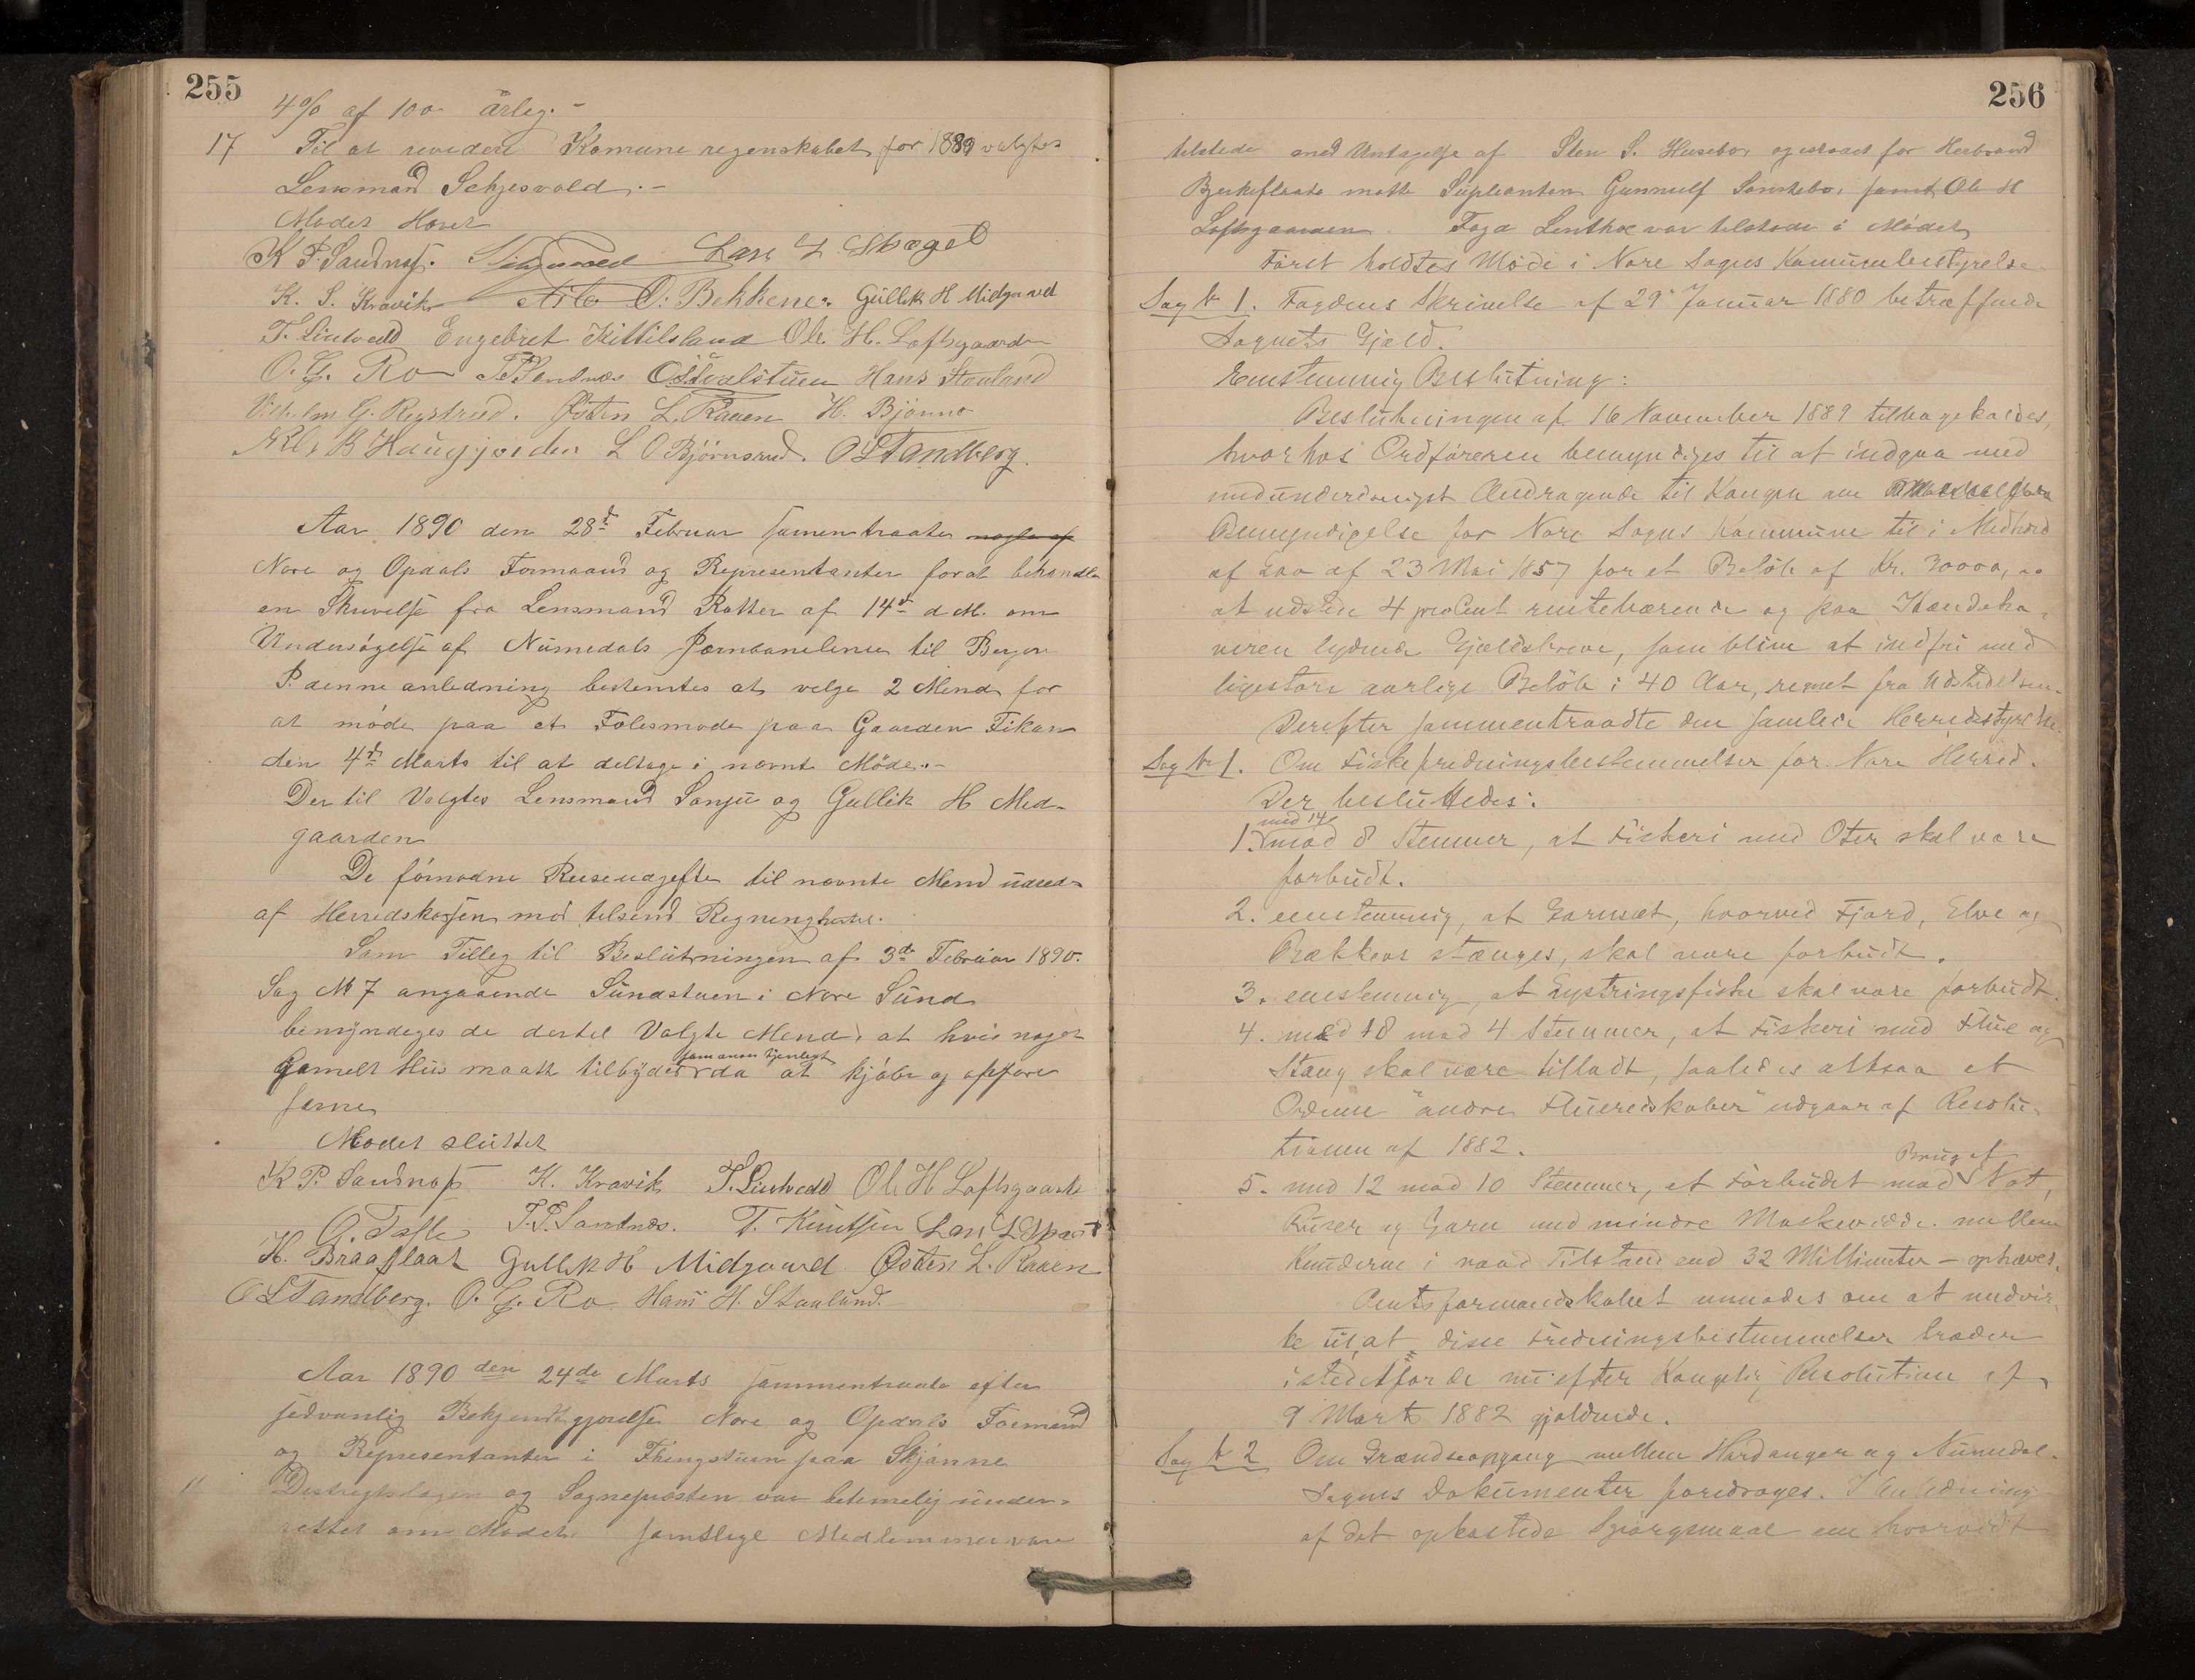 255
4% af 100 årleg.-
17 Til at revidere Komune regenskabet for 1889 valgtes
Lensmand Schjesvold.-
Mødet Hævet
K P. Sandnæs. Lars L Skaget
K. S. Kravik O. Bekkene. Gullik H Midgaard
T. Lintvedt Engebret Kittilsland Ole H. Loftsgaarde
O. G. Ro T P Sandnæs Hans Staaland
Østen L. Raaen H. Bjønno
B Haugjorden L O Bjørnsrud. O L Tandberg.
Aar 1890 den 28d Februar samentraate nogle af
Nore og Opdals Formænd og Representanter for at behandle
en Skrivelse fra Lensmand Rotter af 14d d. M. om
Undersøgelse af Numedals Jærnbanelinie til Bergen
P. denne anledning bestemtes at velge 2 Mend for
at møde paa et Folesmøde paa Gaarden Fikan
den 4d Marts til at deltage i nævnt Møde.-
Der til Valgtes Lensmand Sanju og Gullik H Med-
gaarden
De fórnødne Reiseudgefter til nævnte Mend udred-
af Herredskassen mod tilsend Regning
Som Tilleg til Beslutningen af 3de Februar 1890.
Sag № 7 angaaende Sundstuen i Nore Sund
bemyndeges de dertil Valgte Mend, at hvis noget
som anses tjenligt
Gamelt Hus maatte tilbydes da at kjøbe og opføre
samme
Mødet sluttet
K P. Sandnæs K. Kravik T. Lintvedt Ole H Loftsgaarde
T. P. Sandnæs. T. Knutsen Lars L Skaget
H. Braaflaat Gullik H Midgaard Østen L. Raaen
O L Tandberg. O. G. Ro Hans H. Staaland.
Aar 1890 den 24de Marts sammentraate efter
sedvanlig Bekjendtgjørelse Nore og Opdals Formænd
og Representanter i Thingstuen paa Skjønne
" Destregtslægen og Sognepresten var betimelig under-
rettet om Mødet. samtlige Medlemmer vare
256
tilstede med Untagelse af Sten S. Husebø, og istedet for Herbrand
Bjerkeflaata møtte Supleanten Gunnulf Sønstebø, samt Ole H
Loftsgaarden. Foged Linthoe var tilstede i Mødet,
Først holdtes Møde i Nore Sogns Kommunbestyrelse
Sag № 1. Fogdens Skrivelse af 29' Januar 1880 betræffende
Sognets Gjæld.
Enstemmig Beslutning:
Beslutningen af 16 November 1889 tilbagekaldes,
hvorhos Ordføreren bemyndiges til at indgaa med
underdanigst Andragende til Kongen om
Bemyndigelse for Nore Sogns Kommune til i Medhold
af Lov af 23 Mai 1857 for et Beløb af Kr. 30000,00
at udstede 4 procent rentebærende og paa Ihændeha-
veren lydende Gjældsbreve, som blive at indfri med
ligestore aarlige Beløb i 40 Aar, regnet fra Udstedelsen.
Derefter sammentraadte den samlede Herredsstyrelse.
Sag № 1. Om Fiskefredningsbestemmelser for Nore Herred.
Der besluttedes:
med 14
1. mod 8 Stemmer, at Fiskeri med Oter skal være
forbudt.
2. enstemmig, at Garnsæt, hvorved Fjord, Elve og
Bækkeos stænges, skal være forbudt.
3. enstemmig, at Lystringsfiske skal være forbudt.
4. med 18 mod 4 Stemmer, at Fiskeri med Flue og
Stang skal være tilladt, saaledes altsaa at
Ordene "andre Fluereskaber" udgaar af Resolu-
tionen af 1882.
Brug af
5. med 12 mod 10 Stemmer, at Forbudet mod Not,
Ruser og Garn med mindre Maskevidde mellem
Knuderne i vaad Tilstand end 32 Millimeter – ophæves.
Amtsformandskabet anmodes om at medvir-
ke til at disse Fredningsbestemmelser træder
istedetfor de nu efter Kongelig Resolution af
9 Marts 1882 gjældende.
Sag № 2 Om Grændseopgang mellem Hardanger og Numedal.
Sagens Dokumenter foredroges. I Anledning
af det opkastede Spørgsmaal om hvorvidt